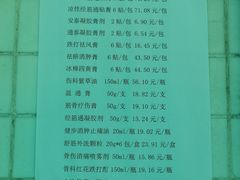 凉性经筋通贴膏 6贴/包 71.08元/包
安泰凝胶膏剂 2贴/包 6.90元/包
通泰凝胶膏剂 2贴/包 5.54元/包
跌打祛风膏 6贴/包 16.45元/包
祛瘀消肿膏 6贴/包 43.50元/包
冰樟四黄膏 6贴/包 44.50元/包
伤科紫草油 150ml/瓶 56.10元/瓶
温通膏 50g/支 18.82元/支
筋骨疗伤膏 50g/支 19.10元/支
经筋通凝胶剂 50g/支 13.24元/支
健步消肿止痛油 20ml/瓶 19.02元/瓶
舒筋外洗颗粒 20g*6包/盒 23.91元/盒
骨伤消痛喷雾剂 50ml/瓶 15.86元/瓶
骨科红花跌打酊 150ml/瓶 19.16元/瓶